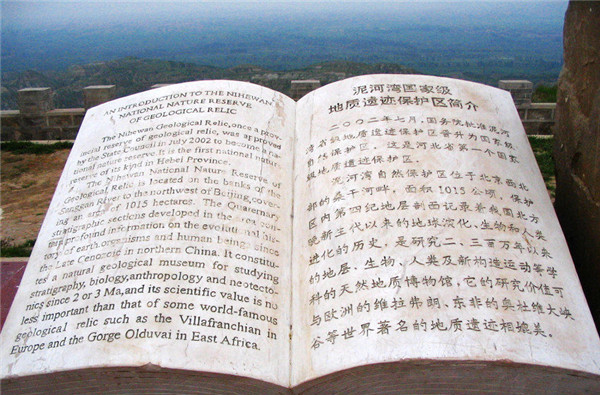 AN INTRODUCTION TO THE NIHEWAN
NATIONAL NATURE RESERVE
OF GEOLOGICAL RELIC
The Nihewan Geological Relic, once a prov-
incial reserve of geological relic, was approved
by the State Council in July 2002 to become a na-
tional nature reserve. It is the first national nature
reserve of its kind in Hebei Province.
The Nihewan National Nature Reserve of
Geological Relic is located on the banks of the
Sanggan River to the northwest of Beijing, cover-
ing an area of 1015 hectares. The Quaternary
stratigraphic sections developed in the area con-
tain profound information on the evolutional his-
tory of earth, organisms and human beings since
the Late Cenozoic in northern China. It constitu-
tes a natural geological museum for studying
stratigraphy, biology, anthropology and neotecto-
nics since 2 or 3 Ma, and its scientific value is no
less important than that of some world-famous
geological relic such as the Villafranchian in
Europe and the Gorge Olduvai in East Africa.
泥河湾国家级
地质遗迹保护区简介
二〇〇二年七月,国务院批准泥河
湾省级地质遗迹保护区晋升为国家级
自然保护区。这是河北省第一个国家
级地质遗迹保护区。
泥河湾自然保护区位于北京西北
部的桑干河畔,面积1015公顷。保护
区内第四纪地层剖面记录着我国北方
晚新生代以来的地球演化、生物和人类
进化的历史,是研究二、三百万年以来
的地层、生物、人类及新构造运动等学
科的天然地质博物馆,它的研究价值可
与欧洲的维拉弗朗、东非的奥杜维大峡
谷等世界著名的地质遗迹相媲美。